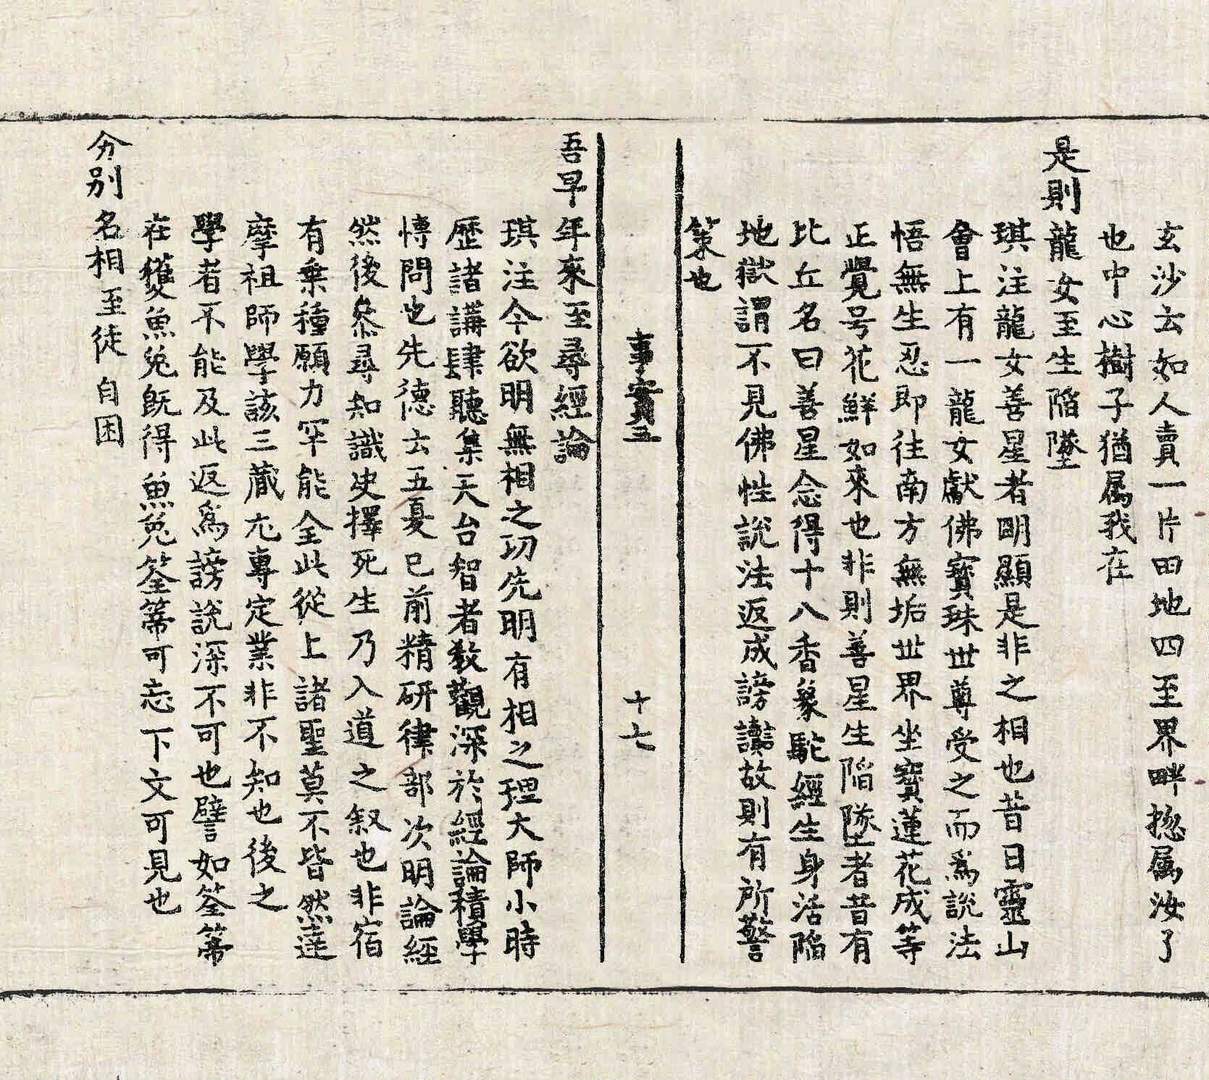 玄沙云如人賣一片田地四至界畔揔属汝了
也中心樹子猶属我在
是則龍女至生陷墜
琪注龍女善星者明顯是非之相也昔日靈山
會上有一龍女獻佛寶珠世尊受之而爲說法
悟無生忍即往南方無垢世界坐寶蓮花成等
正覺号花鮮如來也非則善星生陷墜者昔有
比丘名曰善星念得十八香象駝經生身活陷
地獄謂不見佛性說法返成謗讟故則有所警
策也
事實五
十七
吾早年來至尋經論
琪注今欲明無相之功先明有相之理大師小時
歷諸講肆聽集天台智者教觀深於經論積學
愽問也先德云五夏已前精研律部次明論經
然後叅尋知識史擇死生乃入道之叙也非宿
有乗種願力罕能全此從上諸聖莫不皆然達
摩祖師學該三藏尤專定業非不知也後之
學者不能及此返爲謗說深不可也譬如筌筞
在獲魚兎旣得魚兎筌筞可忘下文可見也
分別名相至徒自困